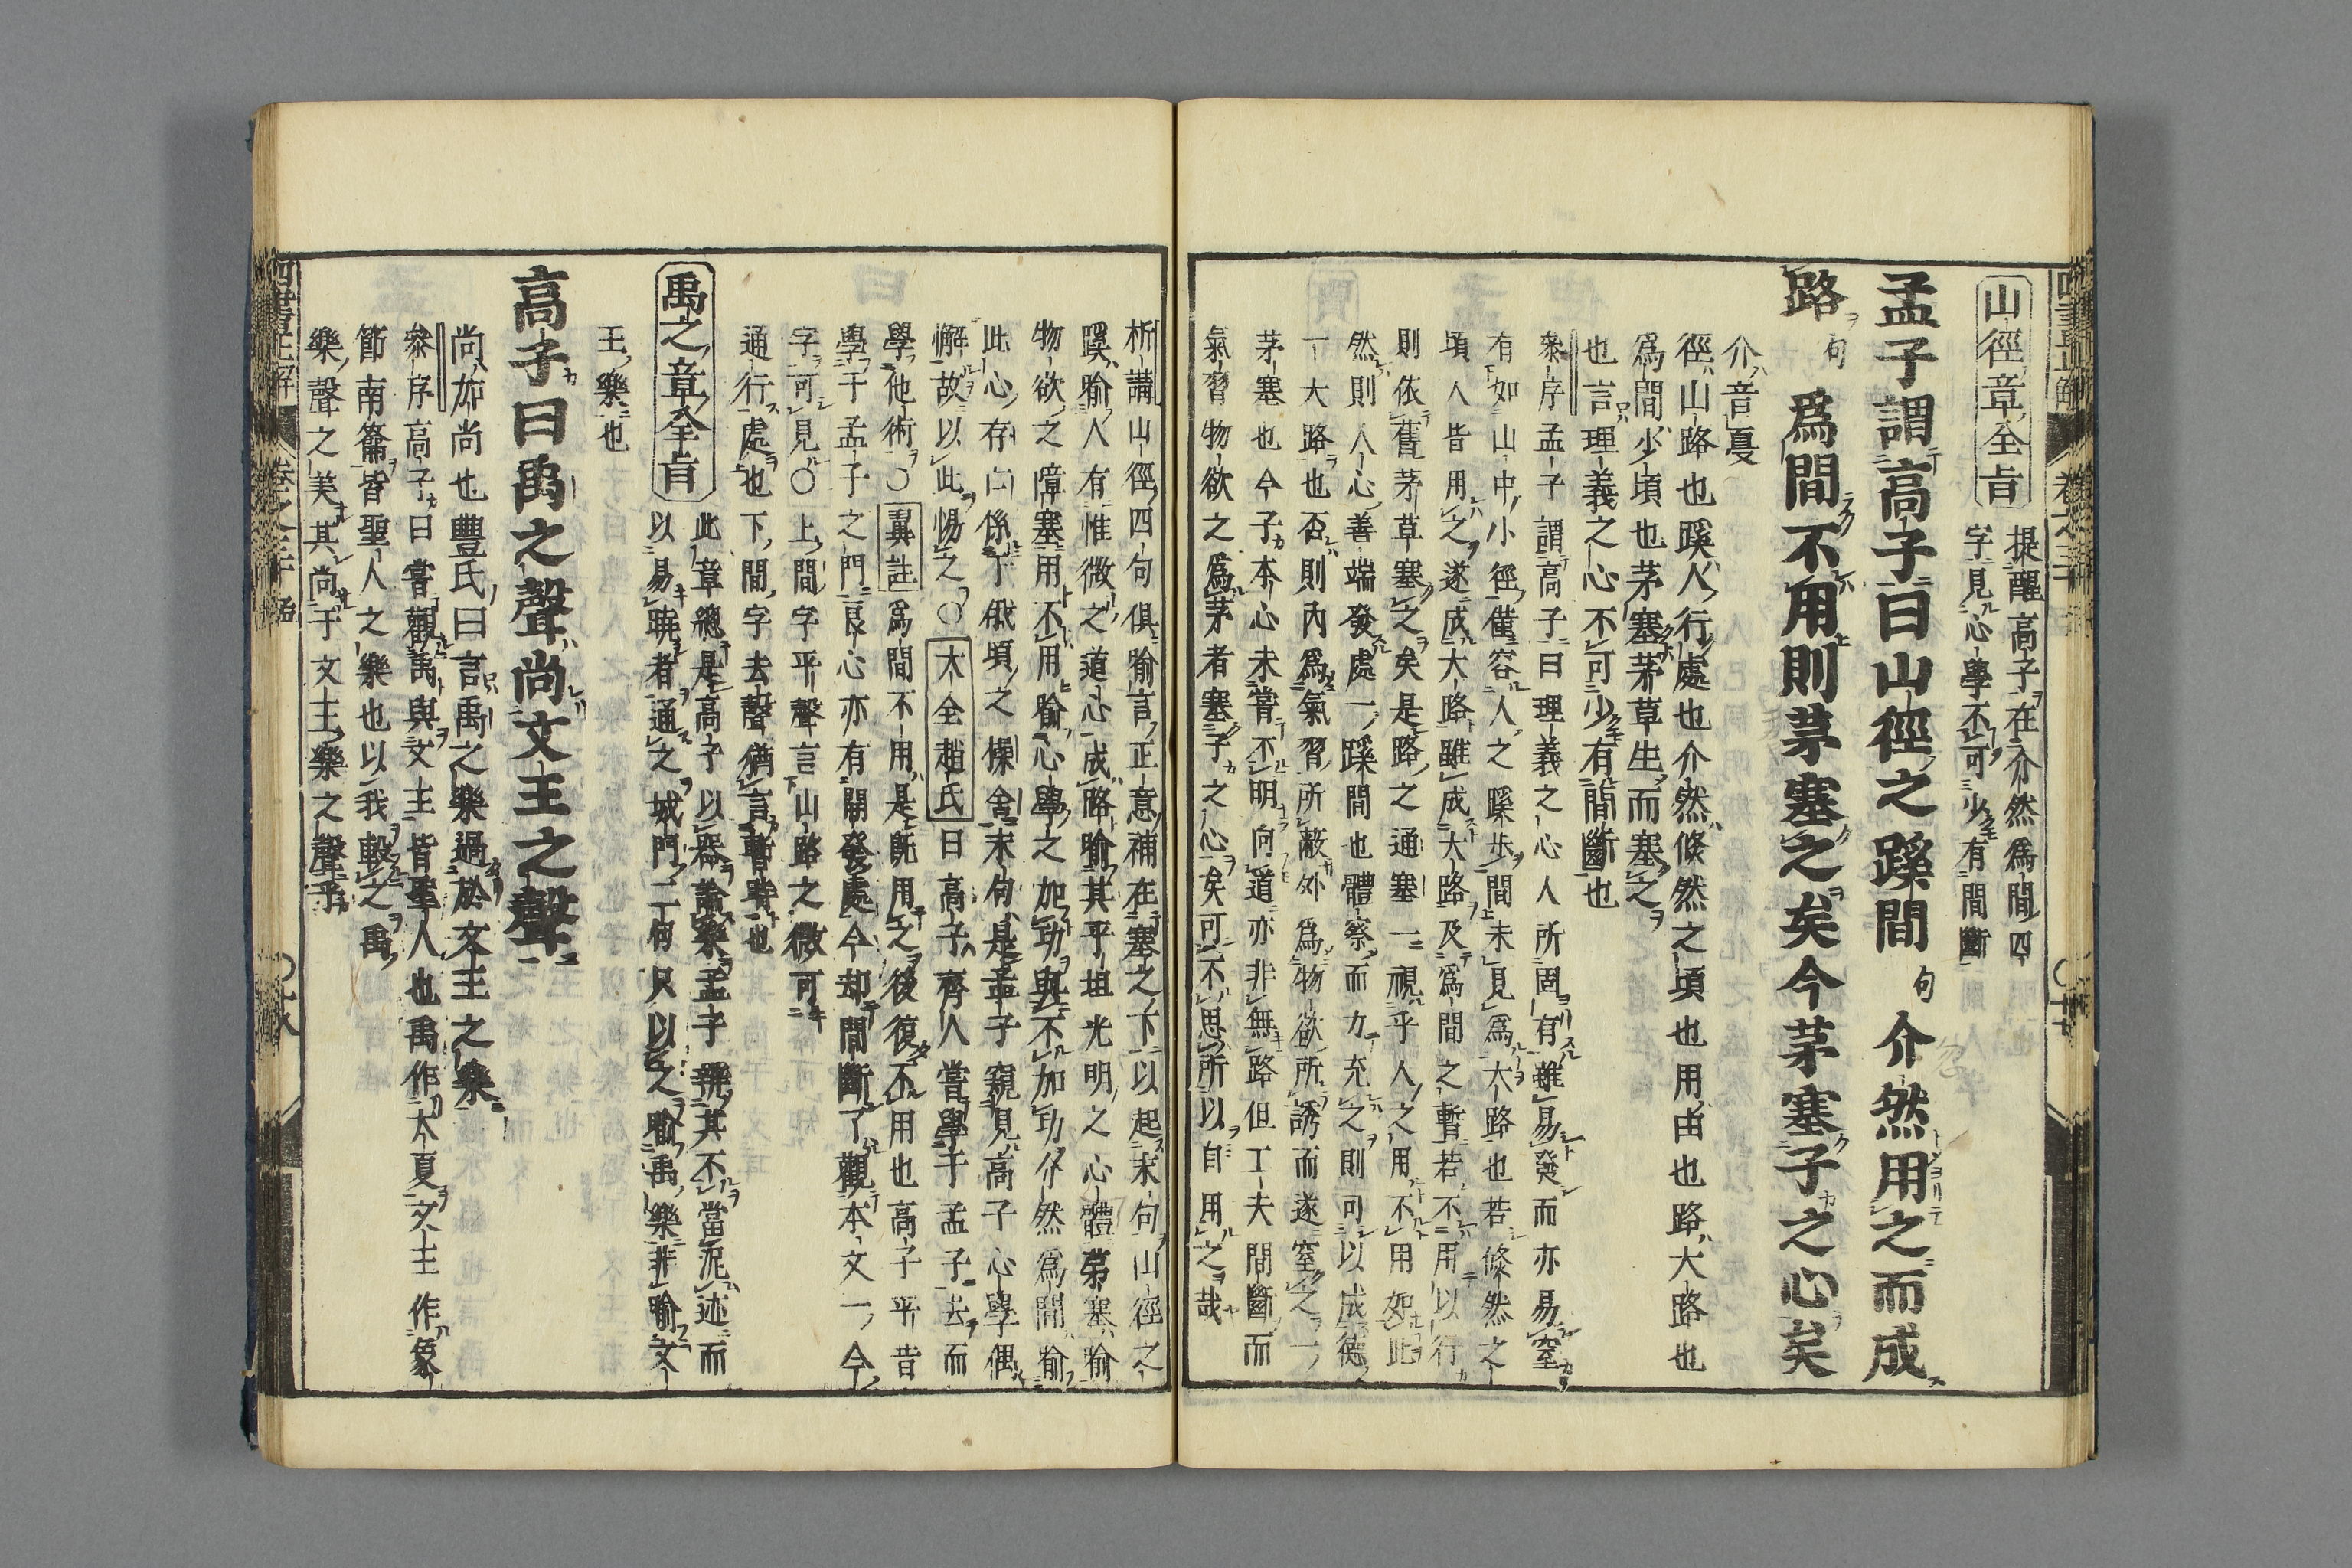 山徑章全旨
提醒高子在介然爲間四
字見心學不可少有間斷
孟子謂高子曰山徑之蹊間句介然用之而成
路句爲間不用則茅塞之矣今茅塞子之心矣
介音戛
徑山路也蹊人行處也介然倐然之頃也用由也路大路也
爲間少頃也茅塞茅草生而塞之
也言理義之心不可少有間斷也
叅序孟子謂高子曰理義之心人所固有雖易發而亦易窒
有如山中小徑僅容人之蹊步間未見爲大路也若倐然之
頃人皆用之遂成大路雖成大路及爲間之暫若不用以行
則依舊茅草塞之矣是路之通塞一視乎人之用不用如此
然則人心善端發處一蹊間也體察而力充之則可以成德
一大路也否則內爲氣習所蔽外爲物欲所誘而遂窒之一
茅塞也今子本心未嘗不明向道亦非無路但工夫間斷而
氣習物欲之爲茅者塞子之心矣可不思所以自用之哉
析講山徑四句俱喻言正意補在塞之下以起末句山徑之
蹊喻人有惟微之道心成路喻其平坦光明之心體茅塞喻
物欲之障塞用不用喻心學之加功與不加功介然爲間喻
此心存亡係于俄頃之操舍末句是孟子窺見高子心學偶
懈故以此惕之○大全趙氏曰高子齊人嘗學于孟子去而
學他術○翼註爲間不用是旣用之後復不用也高子平昔
學于孟子之門良心亦有開發處今却間斷了觀本文一今
字可見○上間字平聲言山路之微可
通行處也下間字去聲猶言暫時也
禹之章全旨
此章總是高子以器論樂孟子曉其不當泥迹而
以易曉者通之城門二句只以之喻禹樂非喻文
王樂也
高子曰禹之聲尚文王之聲
尚加尚也豐氏曰言禹之樂過於文王之樂
叅序高子曰嘗觀禹與文王皆聖人也禹作大夏文王作象
節南籥皆聖人之樂也以我較之禹
樂聲之美其尚于文王樂之聲乎